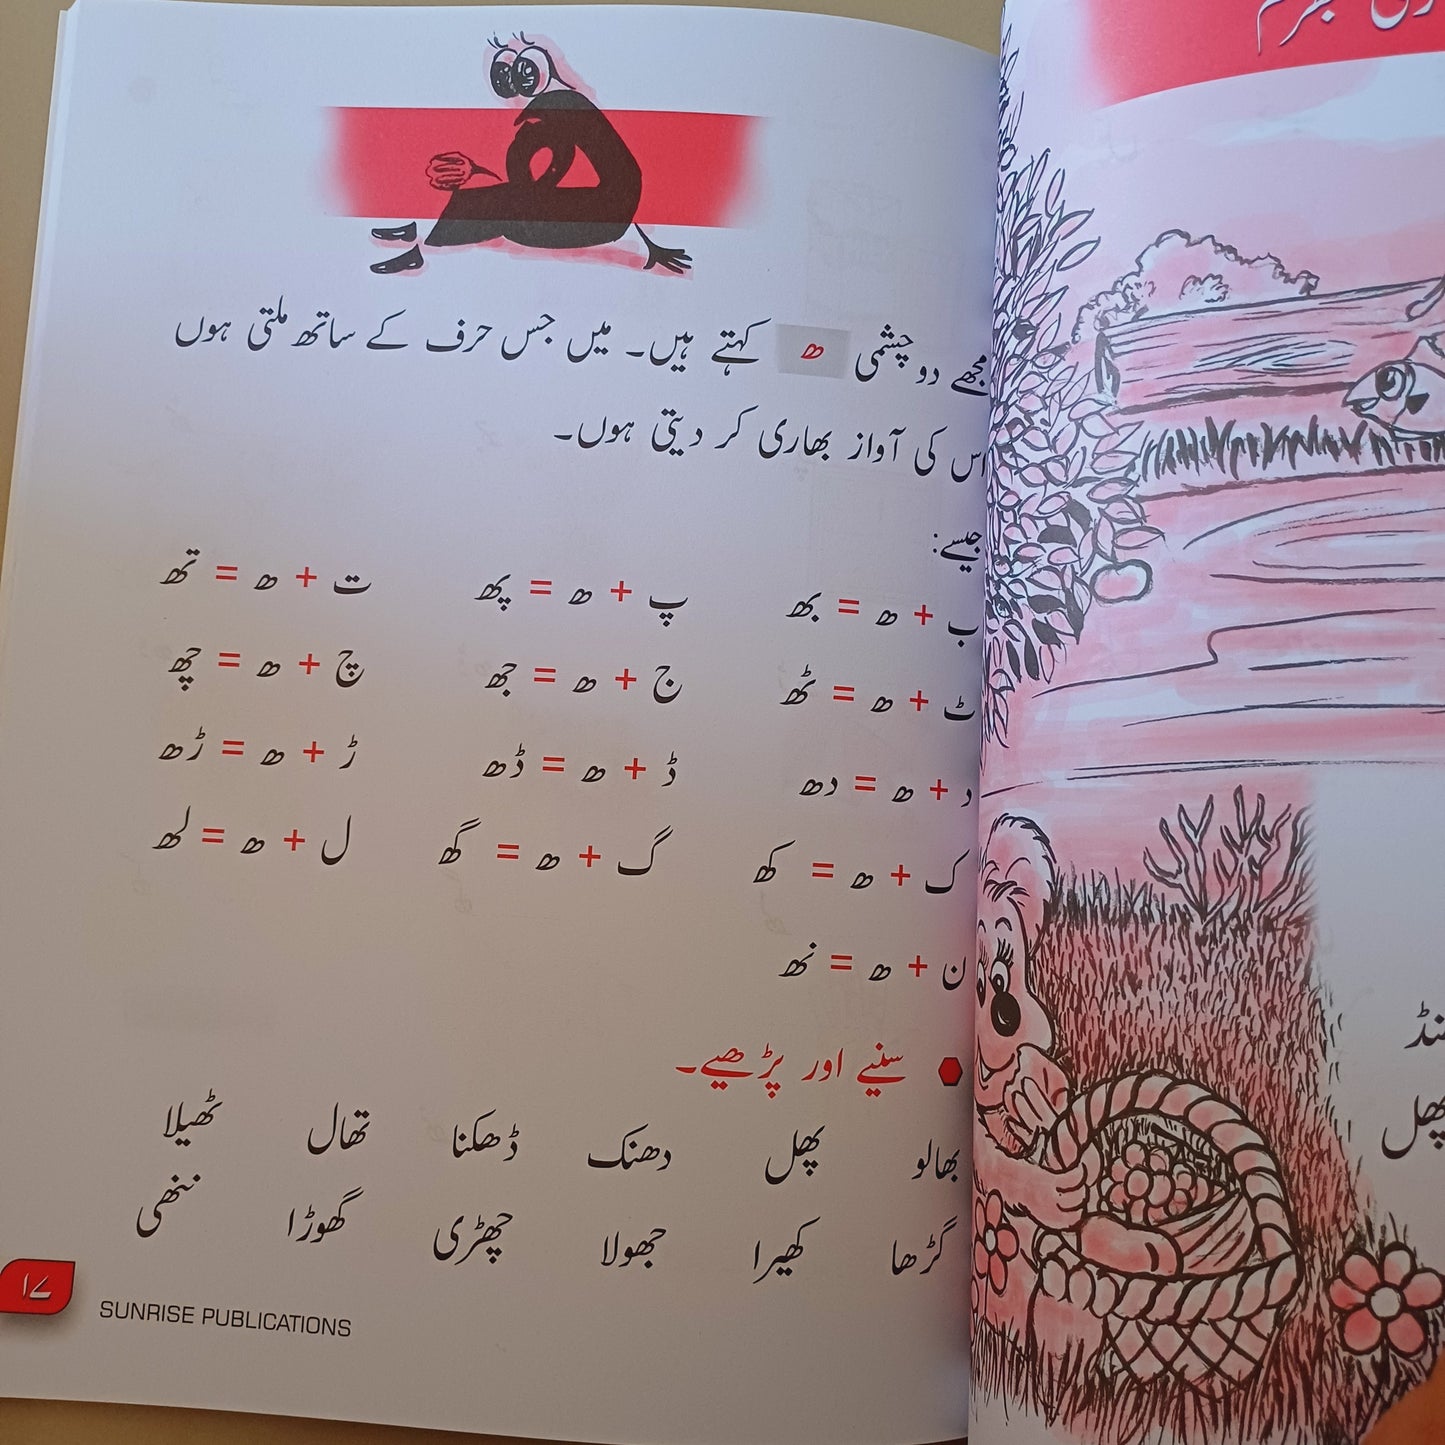 مجھے دو چشمی ھ کہتے ہیں۔ میں جس حرف کے ساتھ ملتی ہوں
اس کی آواز بھاری کر دیتی ہوں۔
جیسے:
ب + ھ = بھ پ + ھ = پھ ت + ھ = تھ
ٹ + ھ = ٹھ ج + ھ = جھ چ + ھ = چھ
د + ھ = دھ ڈ + ھ = ڈھ ڑ + ھ = ڑھ
ک + ھ = کھ گ + ھ = گھ ل + ھ = لھ
ن + ھ = نھ
سنیے اور پڑھیے۔
بھالو پھل دھنک ڈھکنا تھال ٹھیلا
گڑھا کھیرا جھولا چھڑی گھوڑا ننھی
۱۷
SUNRISE PUBLICATIONS
پھل